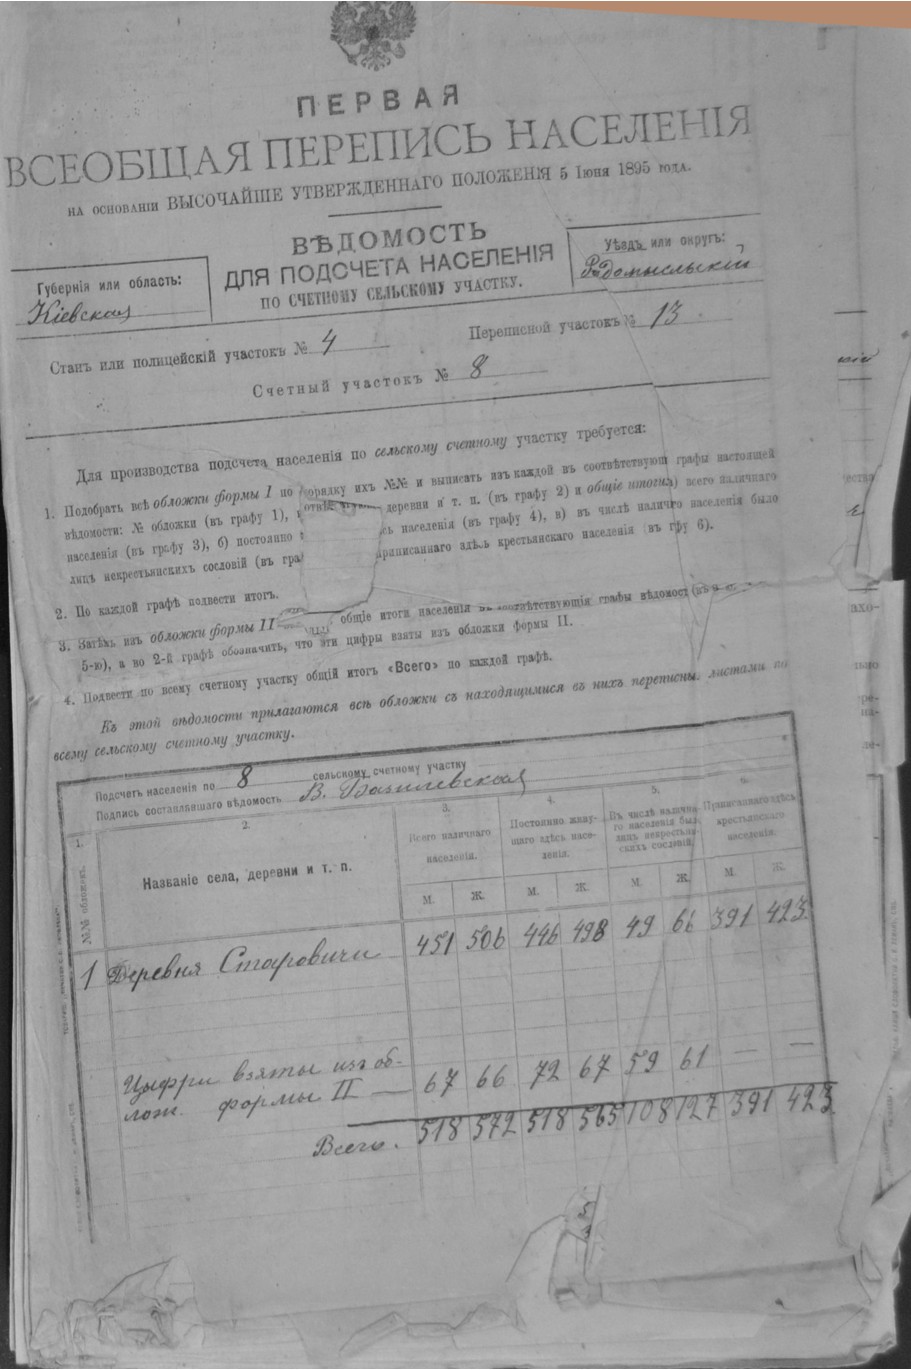 ПЕРВАЯ
ВСЕОБЩАЯ ПЕРЕПИСЬ НАСЕЛЕНІЯ
НА ОСНОВАНІИ ВЫСОЧАЙШЕ УТВЕРЖДЕННАГО ПОЛОЖЕНІЯ 5 Іюня 1895 года.
ВѢДОМОСТЬ
ДЛЯ ПОДСЧЕТА НАСЕЛЕНІЯ
ПО СЧЕТНОМУ СЕЛЬСКОМУ УЧАСТКУ.
Губернія или область:
Кіевская
Уѣздъ или округъ:
Радомысльскій
Станъ или полицейскій участокъ № 4
Переписной участокъ № 13
Счетный участокъ № 8
Для производства подсчета населенія по сельскому счетному участку требуется:
1. Подобрать всѣ обложки формы I по порядку ихъ №№ и выписать изъ каждой въ соотвѣтствующ графы настоящей
вѣдомости: № обложки (въ графу 1), деревни и т. п. (въ графу 2) и общіе итоги: а) всего наличнаго
населенія (въ графу 3), б) постоянно сь населенія (въ графу 4), в) въ числѣ наличнго населенія было
лицъ некрестьянскихъ сословій (въ гра приписаннаго здѣсь крестьянскаго населенія въ гфу 6).
2. По каждой графѣ подвести итогъ.
3. Затѣмъ изъ обложки формы II общіе итоги населенія въ соотвѣтствующія графы вѣдомост
5-ю), а во 2-й графѣ обозначить, что эти цифры взяты изъ обложки формы II.
4. Подвести по всему счетному участку общій итогъ «Всего» по каждой графѣ.
Къ этой вѣдомости прилагаются всѣ обложки съ находящимися въ нихъ переписны. листами по
всему сельскому счетному участку.
Подсчетъ населенія по 8 сельскому счетному участку
Подпись составлявшаго вѣдомость В. Базилевская
1. 2. 3. 4. 5. 6.
№№ обложекъ.
Названіе села, деревни и т. п.
Всего наличнаго населенія.
Постоянно живущаго здѣсь населенія.
Въ числѣ наличнаго населенія было лицъ некрестьянскихъ сословій.
Приписаннаго здѣсь крестьянскаго населенія.
М. Ж. М. Ж. М. Ж. М. Ж.
1 Деревня Старовичи 451 506 446 498 49 66 391 423
Цыфры взяты изъ об-
лож. формы II — 67 66 72 67 59 61 — —
Всего. 518 572 518 565 108 127 391 423